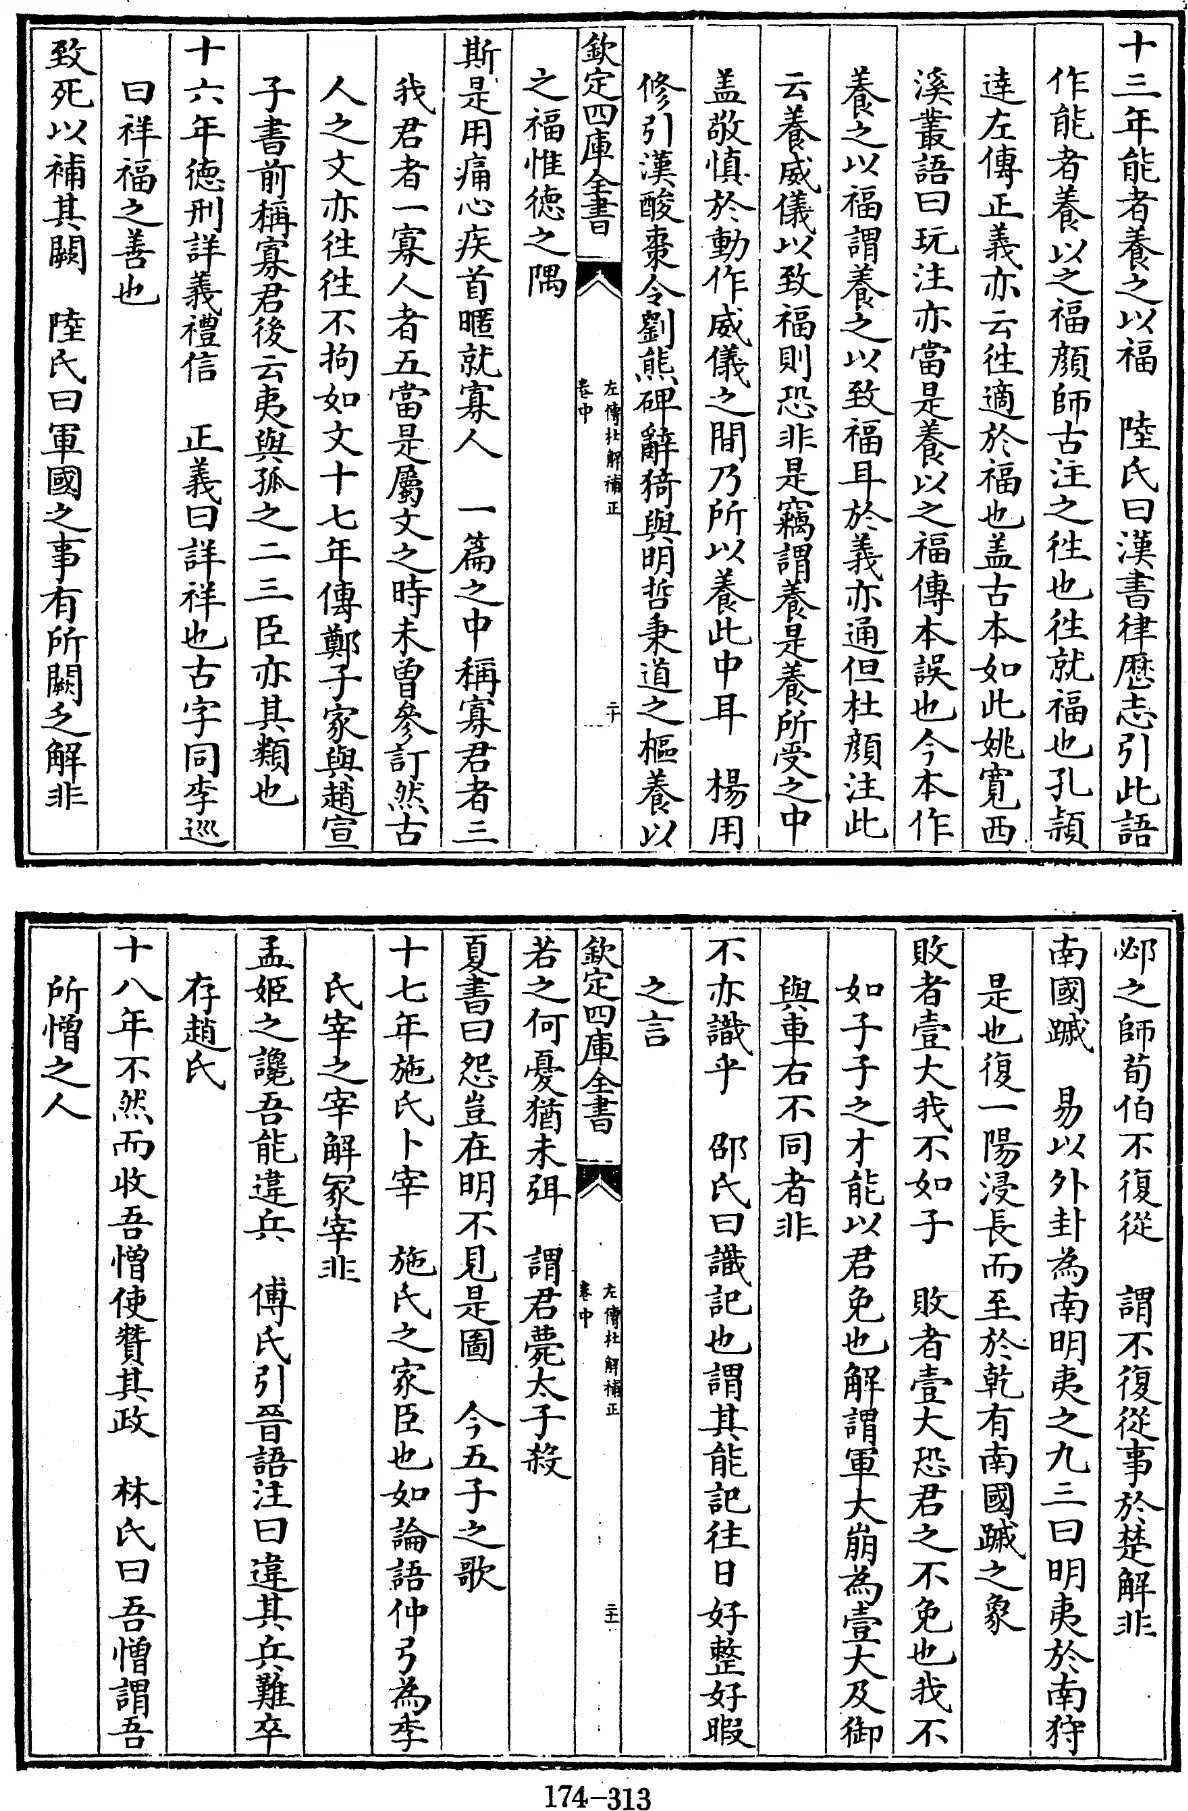 十三年能者養之以福　陸氏曰漢書律歷志引此語
作能者養以之福顔師古注之徃也徃就福也孔穎
逹左傳正義亦云徃適於福也盖古本如此姚寛西
溪叢語曰玩注亦當是養以之福傳本誤也今本作
養之以福謂養之以致福耳於義亦通但杜顔注此
云養威儀以致福則恐非是竊謂養是養所受之中
盖敬慎於動作威儀之間乃所以養此中耳　楊用
修引漢酸棗令劉熊碑辭猗與明哲秉道之樞養以
欽定四庫全書
左傳杜解補正
卷中
二十
之福惟德之隅
斯是用痛心疾首暱就寡人　一篇之中稱寡君者三
我君者一寡人者五當是屬文之時未曾參訂然古
人之文亦徃徃不拘如文十七年傳鄭子家與趙宣
子書前稱寡君後云夷與孤之二三臣亦其類也
十六年德刑詳義禮信　正義曰詳祥也古字同李巡
曰祥福之善也
致死以補其闕　陸氏曰軍國之事有所闕乏解非
邲之師荀伯不復從　謂不復從事於楚解非
南國䠞　易以外卦為南明夷之九三曰明夷於南狩
是也復一陽浸長而至於乾有南國䠞之象
敗者壹大我不如子　敗者壹大恐君之不免也我不
如子子之才能以君免也解謂軍大崩為壹大及御
與車右不同者非
不亦識乎　邵氏曰識記也謂其能記往日好整好暇
之言
欽定四庫全書
左傳杜解補正
卷中
二十一
若之何憂猶未弭　謂君薨太子殺
夏書曰怨豈在明不見是圖　今五子之歌
十七年施氏卜宰　施氏之家臣也如論語仲弓為季
氏宰之宰解冢宰非
孟姬之讒吾能違兵　傅氏引晉語注曰違其兵難卒
存趙氏
十八年不然而收吾憎使贊其政　林氏曰吾憎謂吾
所憎之人
174-313